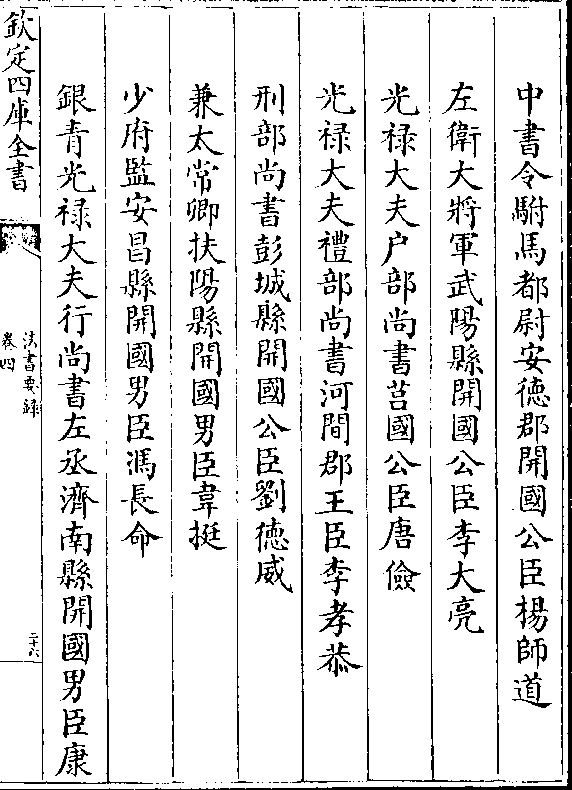 中書令駙馬都尉安德郡開國公臣楊師道
左衛大將軍武陽縣開國公臣李大亮
光禄大夫户部尚書莒國公臣唐儉
光禄大夫禮部尚書河間郡王臣李孝恭
刑部尚書彭城縣開國公臣劉德威
兼太常卿扶陽縣開國男臣韋挺
少府監安昌縣開國男臣馮長命
銀青光禄大夫行尚書左丞濟南縣開國男臣康
欽定四庫全書
法書要録
卷四
二十六